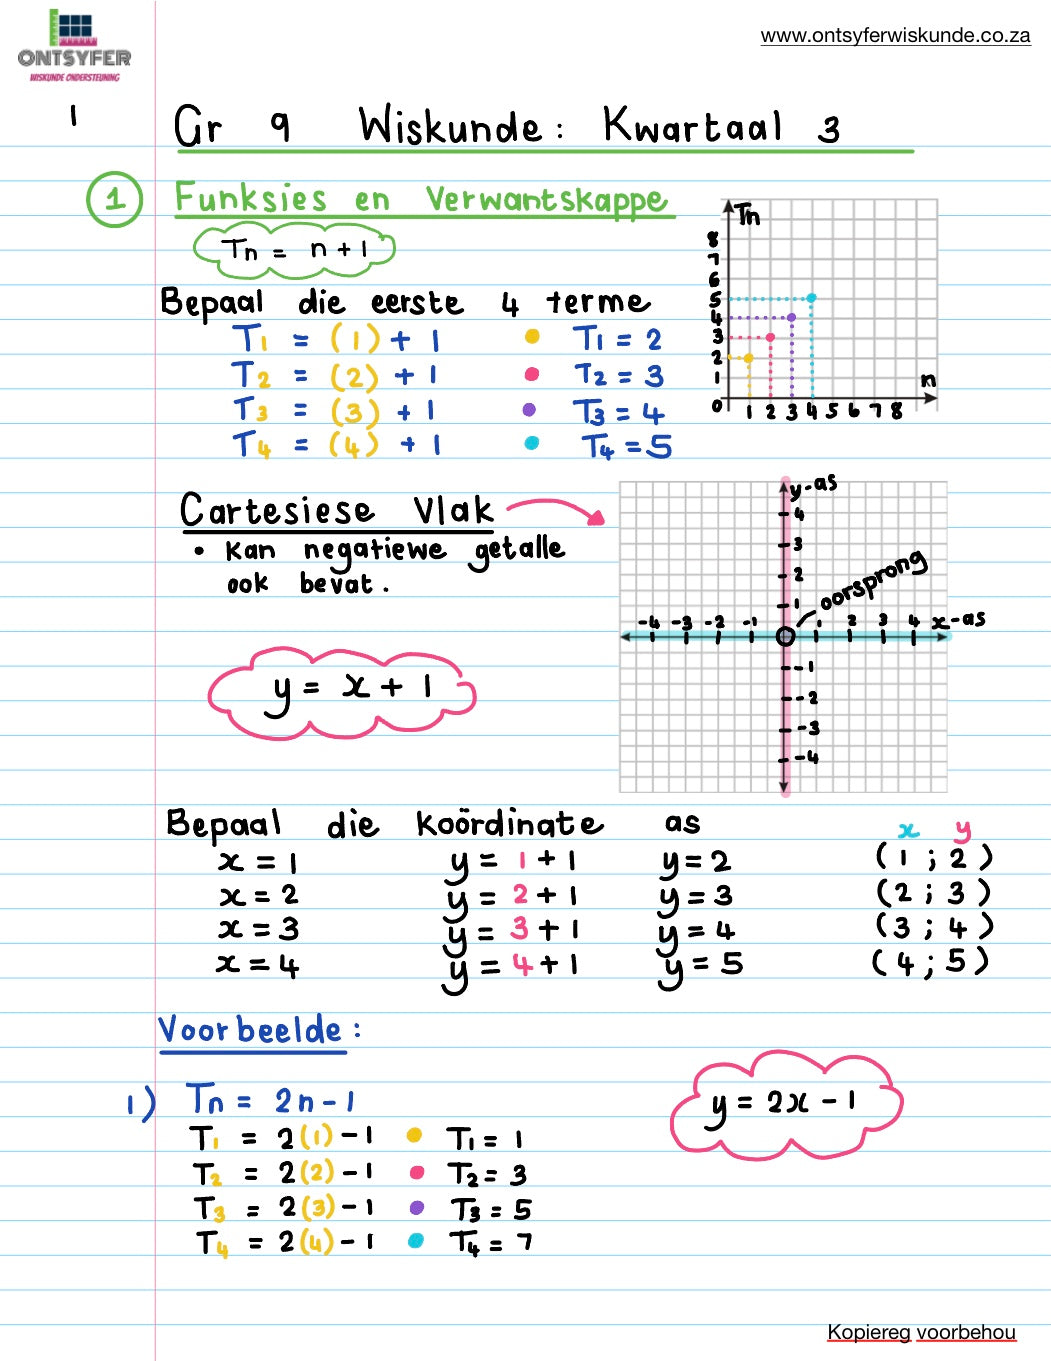 ONTSYFER
WISKUNDE ONDERSTEUNING
www.ontsyferwiskunde.co.za
1
Gr 9 Wiskunde: Kwartaal 3
1 Funksies en Verwantskappe
Tn = n + 1
Bepaal die eerste 4 terme
T1 = (1) + 1 T1 = 2
T2 = (2) + 1 T2 = 3
T3 = (3) + 1 T3 = 4
T4 = (4) + 1 T4 = 5
Tn
8
7
6
5
4
3
2
1
n
0 1 2 3 4 5 6 7 8
Cartesiese Vlak
• Kan negatiewe getalle
ook bevat.
y-as
4
3
2
1
oorsprong
-4 -3 -2 -1 1 2 3 4 x-as
-1
-2
-3
-4
y = x + 1
Bepaal die koördinate as
x y
x = 1 y = 1 + 1 y = 2 (1 ; 2)
x = 2 y = 2 + 1 y = 3 (2 ; 3)
x = 3 y = 3 + 1 y = 4 (3 ; 4)
x = 4 y = 4 + 1 y = 5 (4 ; 5)
Voorbeelde:
1) Tn = 2n - 1
y = 2x - 1
T1 = 2(1) - 1 T1 = 1
T2 = 2(2) - 1 T2 = 3
T3 = 2(3) - 1 T3 = 5
T4 = 2(4) - 1 T4 = 7
Kopiereg voorbehou